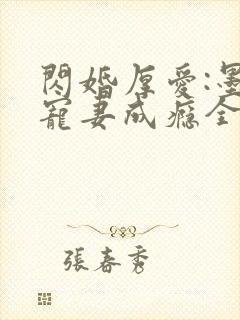 閃婚厚愛:墨
寵妻成癮全
張春秀